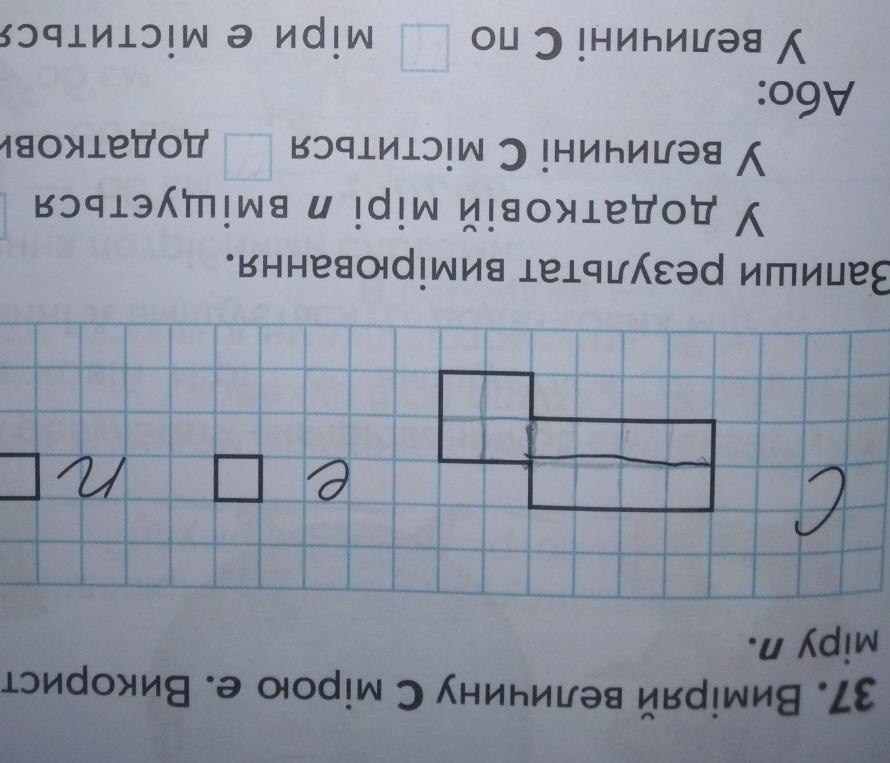 37. Виміряй величину С мірою е. Використ
міру п.
С е п
Запиши результат вимірювання.
У додатковій мірі п вміщується
У величині С міститься додаткови
Або:
У величині С по міри е міститься